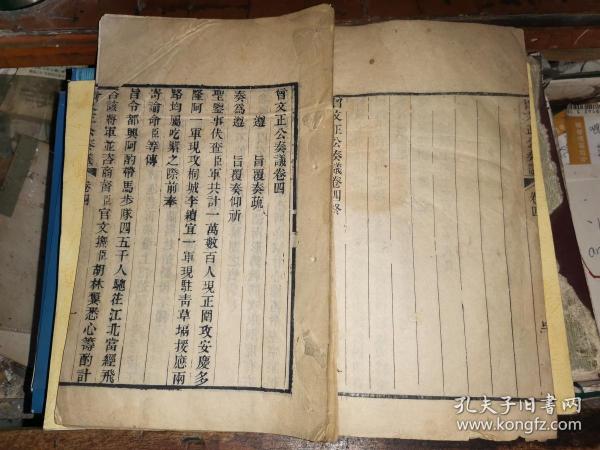 曾文正公奏議卷四
遵　旨覆奏疏
奏爲遵　旨覆奏仰祈
聖鑒事伏查臣軍共計一萬數百人現正圍攻安慶多
隆阿一軍現攻桐城李續宜一軍現駐青草塥援應兩
路均屬吃緊之際前奉
寄諭命臣等傳
旨令都興阿酌帶馬步隊四五千人馳往江北當經飛
咨該將軍並咨商督臣官文撫臣胡林翼悉心籌酌計
公奏議 卷四
曾文正公奏議卷四終
文正公奏 卷四
孔夫子旧书网
www.kongfz.com